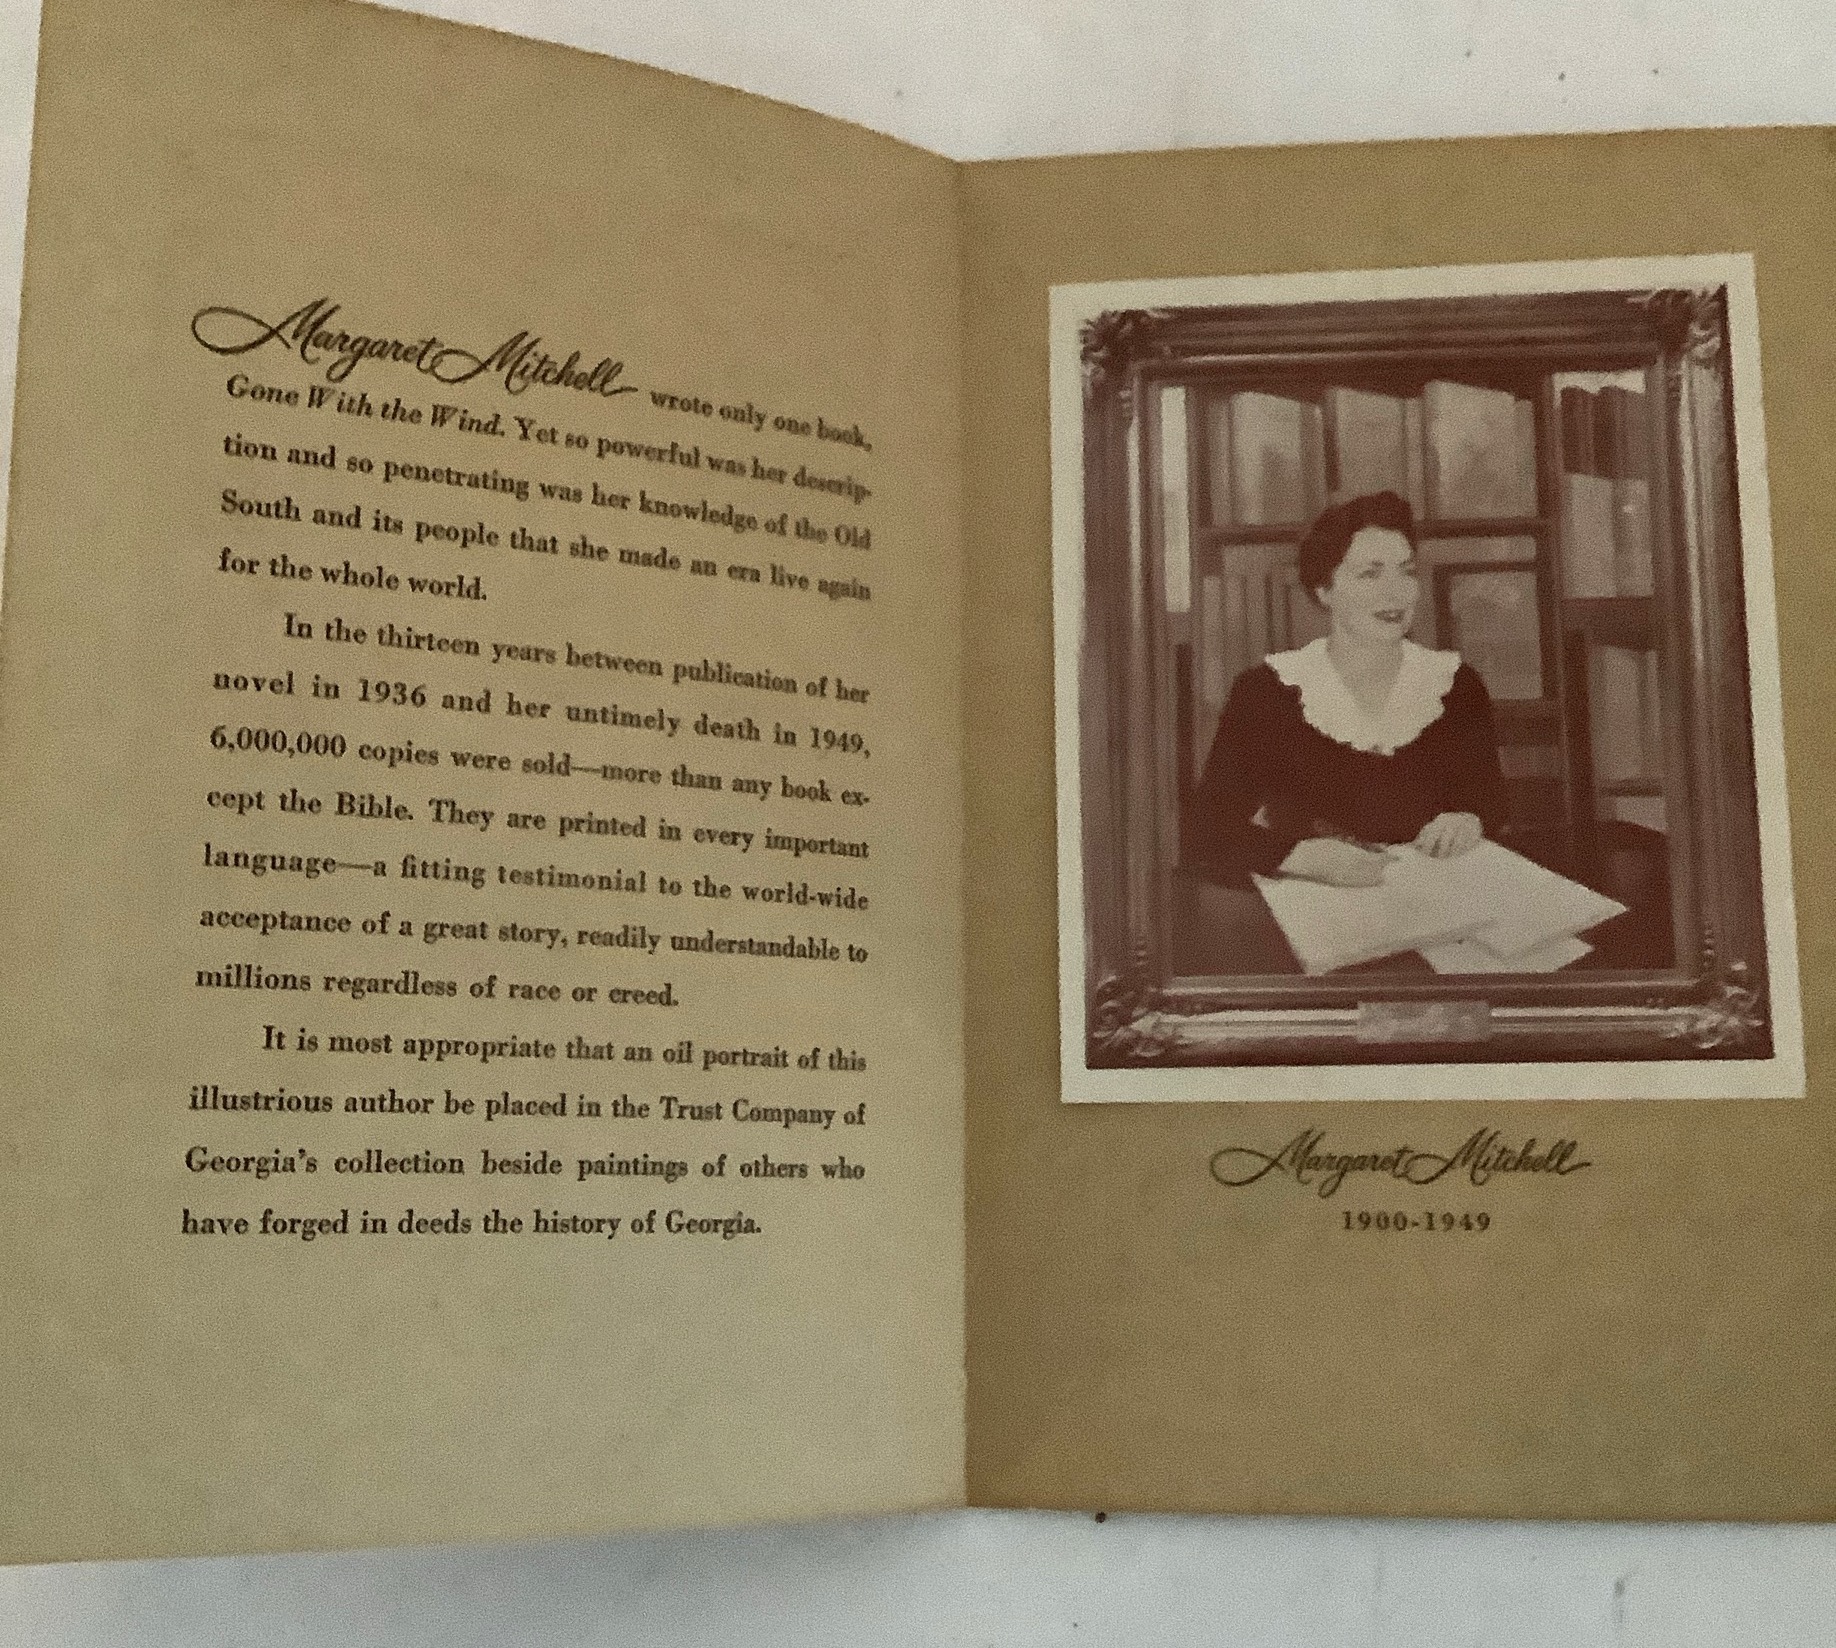 Margaret Mitchell wrote only one book,
Gone With the Wind. Yet so powerful was her descrip-
tion and so penetrating was her knowledge of the Old
South and its people that she made an era live again
for the whole world.
In the thirteen years between publication of her
novel in 1936 and her untimely death in 1949,
6,000,000 copies were sold—more than any book ex-
cept the Bible. They are printed in every important
language—a fitting testimonial to the world-wide
acceptance of a great story, readily understandable to
millions regardless of race or creed.
It is most appropriate that an oil portrait of this
illustrious author be placed in the Trust Company of
Georgia's collection beside paintings of others who
have forged in deeds the history of Georgia.
Margaret Mitchell
1900-1949